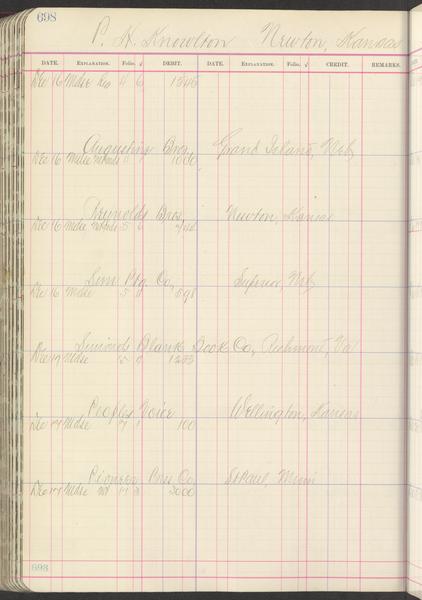 698
P. H. Knowlton Newton, Kansas
DATE. EXPLANATION. Folio. ✓ DEBIT. DATE. EXPLANATION. Folio. ✓ CREDIT. REMARKS.
Dec 16 Mdse 4 6 1345
Augustine Bros, Grand Island, Neb
Dec 16 Mdse 1000
Reynolds Bros, Newton, Kansas
Dec 16 Mdse 5 6
Ptg. Co, Superior, Neb
Dec 16 Mdse 5 6 598
Blank Book Co, Richmond, Va
Dec 17 Mdse 1253
Peoples Voice Wellington, Kansas
Dec 17 Mdse 7 1 100
Pioneer Press Co St Paul, Minn
Dec 17 Mdse 3000
698